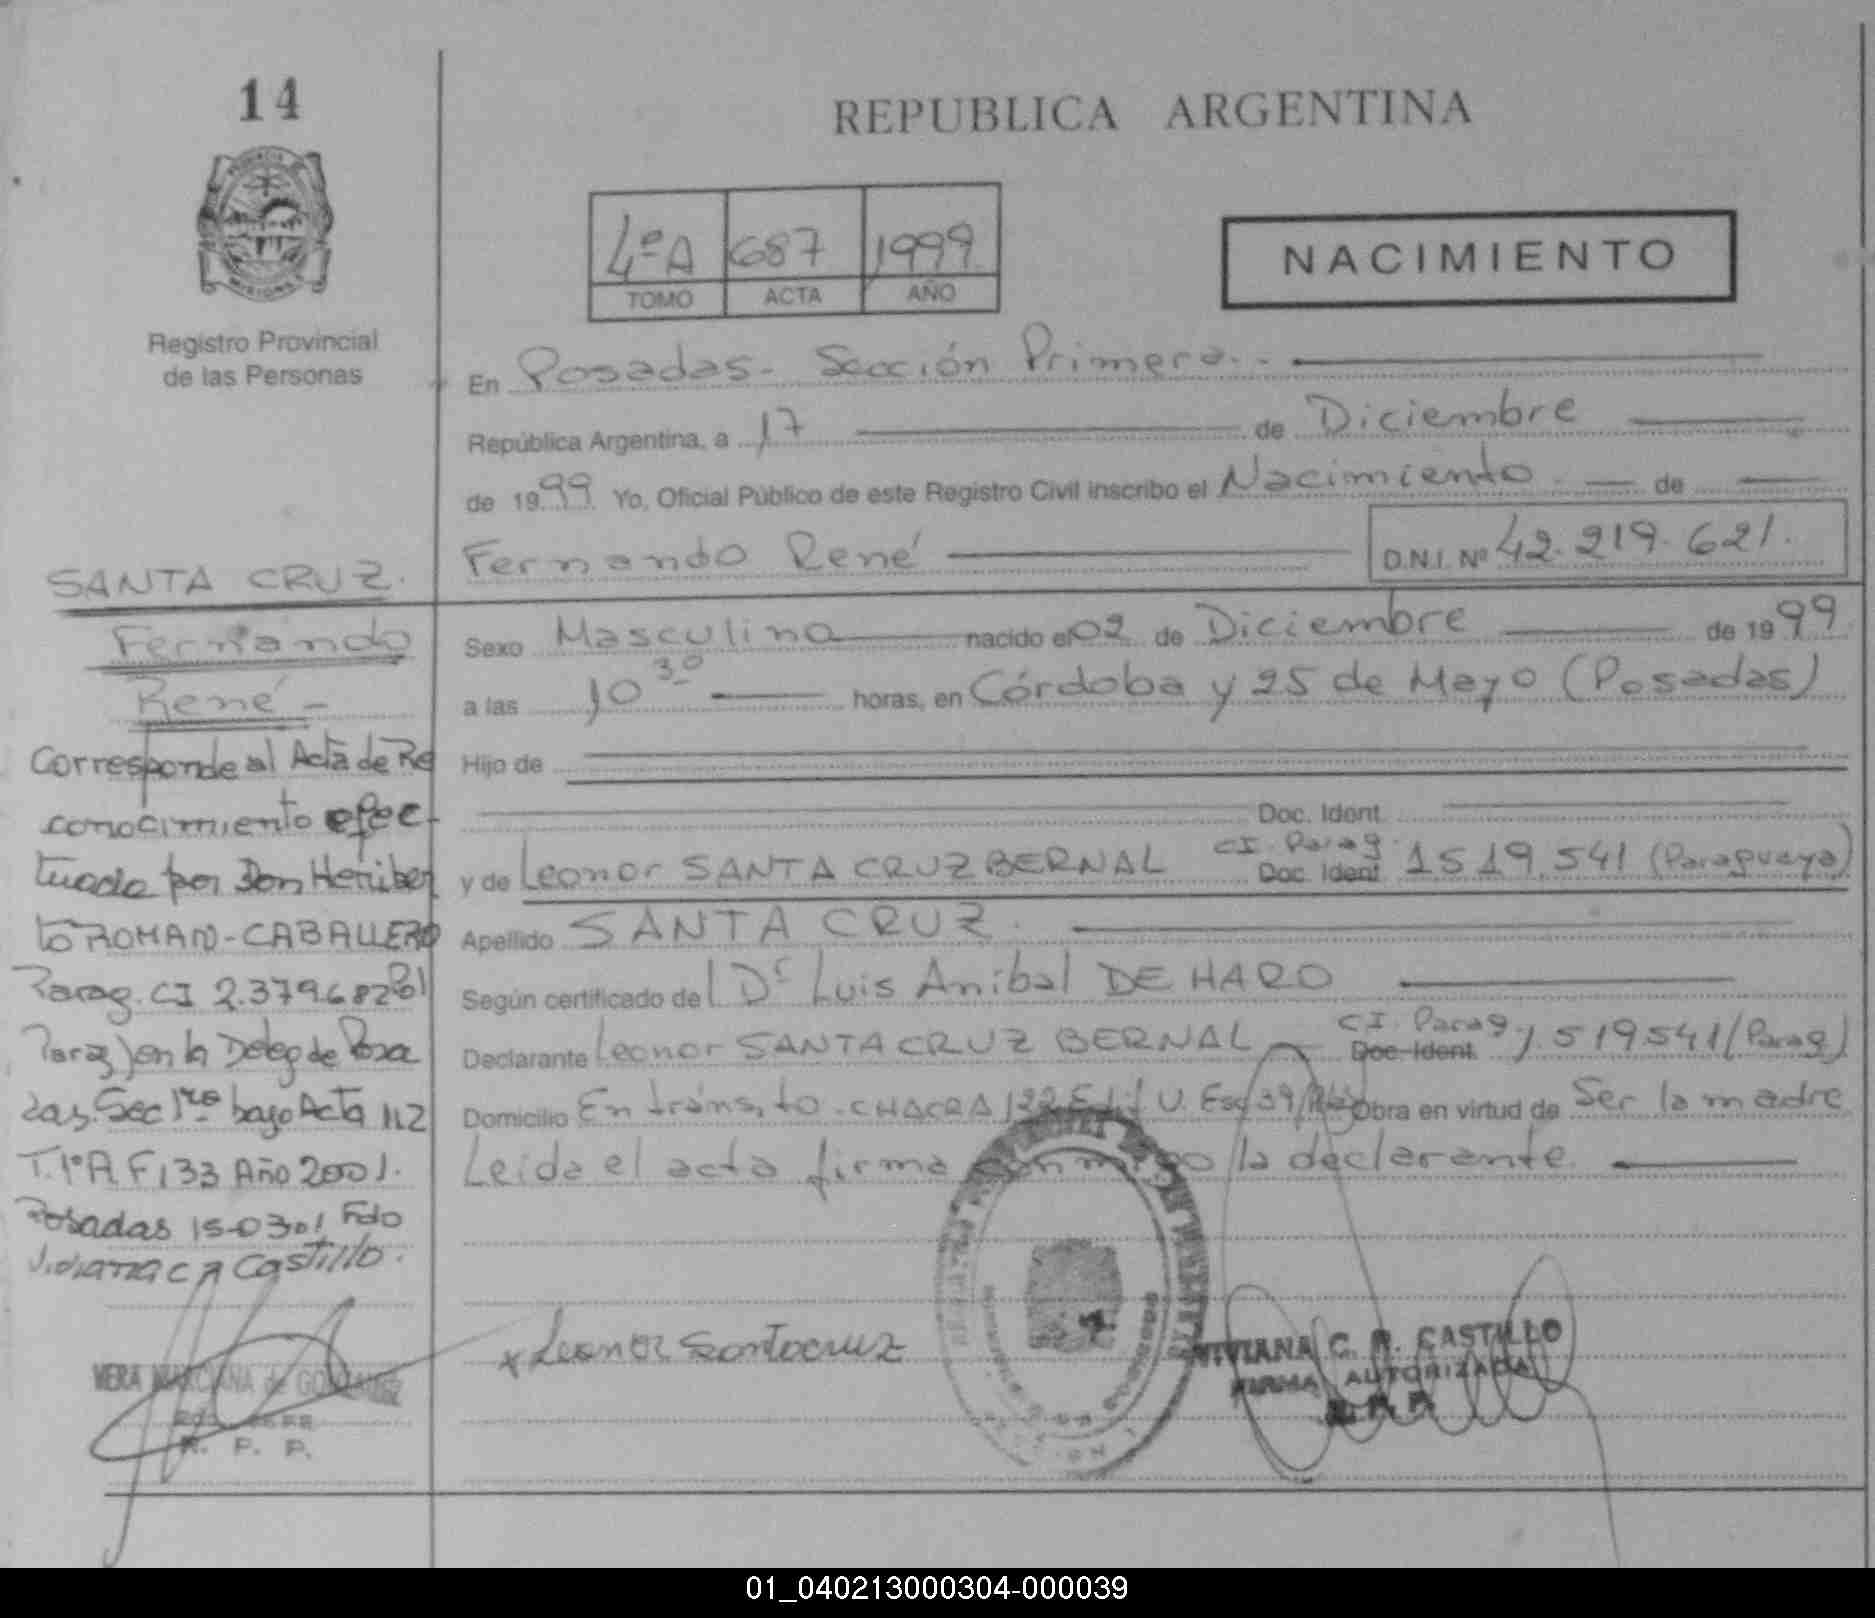 14
REPUBLICA ARGENTINA
PROVINCIA DE
MISIONES
Registro Provincial
de las Personas
4ºA 687 1999
TOMO ACTA AÑO
NACIMIENTO
En Posadas - Sección Primera.-
República Argentina, a 17 de Diciembre
de 1999 Yo, Oficial Público de este Registro Civil inscribo el Nacimiento de
Fernando René D.N.I. Nº 42.219.621.
Sexo Masculino nacido el 02 de Diciembre de 1999
a las 10 30 horas, en Córdoba y 25 de Mayo (Posadas)
Hijo de
Doc. Ident.
y de Leonor SANTA CRUZ BERNAL CI. Parag. Doc. Ident. 1519.541 (Paraguaya)
Apellido SANTA CRUZ.
Según certificado del Dr Luis Anibal DE HARO
Declarante Leonor SANTA CRUZ BERNAL CI. Parag Doc. Ident. 1.519541 (Parag)
Domicilio En tránsito - CHACRA 122 Edif U. Esc 39 Obra en virtud de Ser la madre
Leída el acta firma conmigo la declarante.
x Leonor Santacruz
VIVIANA C. R. CASTILLO
FIRMA AUTORIZADA
R. P. P.
SANTA CRUZ.
Fernando
René -
Corresponde al Acta de Re
conocimiento efec
tuado por Don Heriber
to ROMAN-CABALLERO
Parag. CI 2.379.682 Pol
Parag) en la Deleg de Posa
das. Sec 1ra bajo Acta 112
T.1ºA F 133 Año 2001.
Posadas 15-03-01 Fdo
Viviana C R Castillo.
VERA MARCIANA de GONZALEZ
R. P. P.
01_040213000304-000039